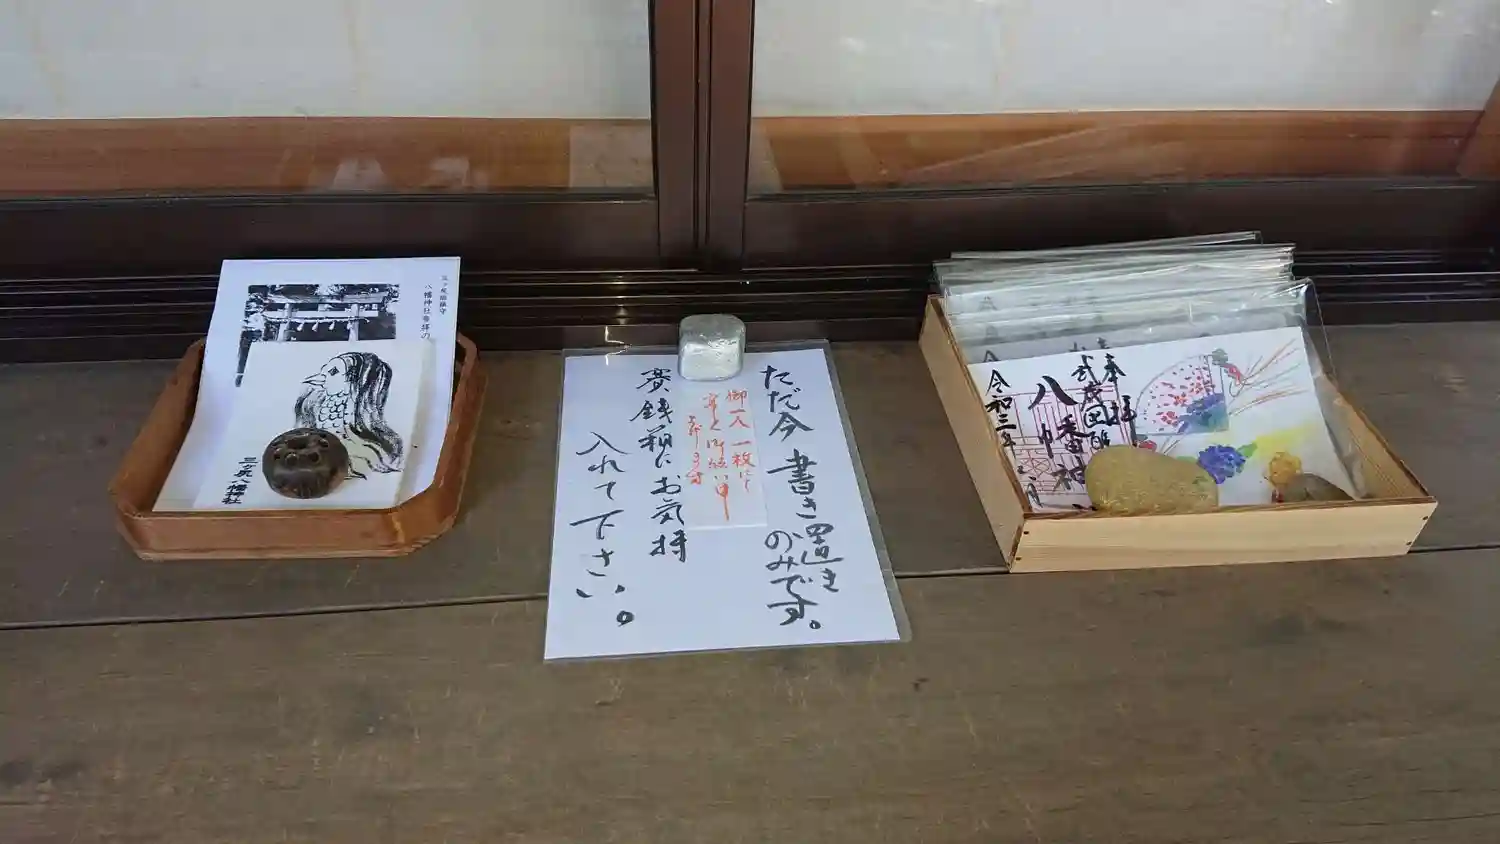 八幡神社参拝の
三ヶ尻八幡神社
ただ今
書き置き
のみです。
御一人一枚にて
賽銭箱にお気持
入れて下さい。
奉拝
武蔵国
八幡神
令和三年